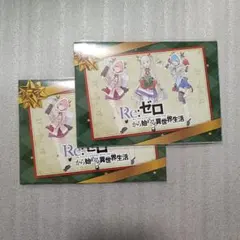 Re:ゼロ
から始める異世界生活
Re:ゼロ
から始める異世界生活